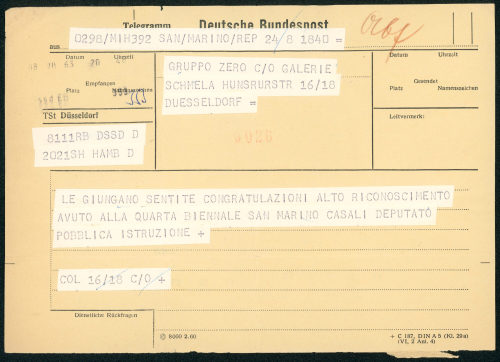 Telegramm Deutsche Bundespost
aus
0298/MIH392 SAN/MARINO/REP 24/8 1840 =
Datum Uhrzeit
63 20
Empfangen
Platz Namenszeichen
TSt Düsseldorf
8111RB DSSD D
2021SH HAMB D
GRUPPO ZERO C/O GALERIE
SCHMELA HUNSRURSTR 16/18
DUESSELDORF =
Datum Uhrzeit
Gesendet
Platz Namenszeichen
Leitvermerk:
LE GIUNGANO SENTITE CONGRATULAZIONI ALTO RICONOSCIMENTO
AVUTO ALLA QUARTA BIENNALE SAN MARINO CASALI DEPUTATO
POBBLICA ISTRUZIONE +
COL 16/18 C/O +
Dienstliche Rückfragen
© 8000 2.60
+ C 187, DIN A 5 (Kl. 29a)
(VI, 2 Anl. 4)